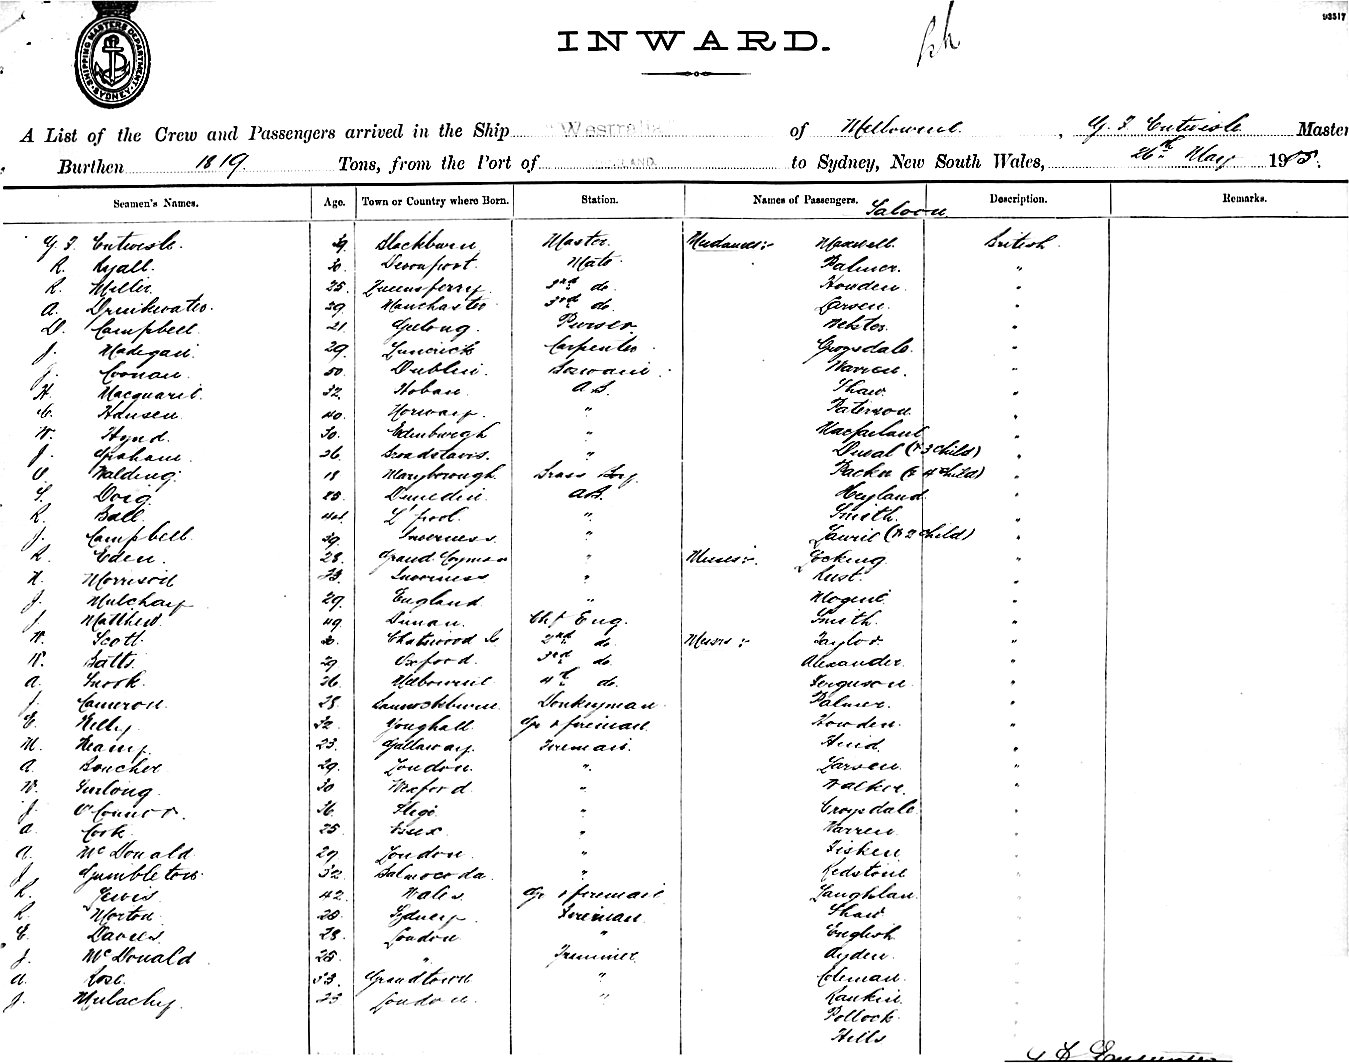 93517
SHIPPING MASTERS DEPARTMENT SYDNEY
INWARD.
A List of the Crew and Passengers arrived in the Ship "Westralia" of Melbourne, G. J. Entwisle Master
Burthen 1819 Tons, from the Port of LAND to Sydney, New South Wales, 26th May 1905.
Seamen's Names. Age. Town or Country where Born. Station. Names of Passengers. Saloon Description. Remarks.
Entwisle 39 Blackburn Master Mesdames:- Maxwell British
R. Ryall 30 Devonport Mate Palmer "
R. Miller 25 Queensferry 2nd do Howden "
A. Drinkwater 29 Manchester 3rd do Larsen "
D. Campbell 21 Geelong Purser Webster "
J. Madigan 29 Limerick Carpenter Croysdale "
J. Conan 50 Dublin Warren "
H. Macquarie 32 Hobart A.B. Shaw "
C. Hansen 40 Norway " Paterson "
W. Hynd 30 Edinburgh " Macfarlane "
J. Graham 26 Broadstairs " (& 3 child) "
Walding 18 Maryborough Brass Boy (& 4 child) "
S. Doig 25 Dunedin A.B. Heyland "
R. Ball 44 L'pool " Smith "
J. Campbell 39 Inverness " Laurie (& 2 child) "
R. Eden 28 Grand Cayman " Misses:- Locking "
Morrison 23 Inverness " Rust "
J. Mulchay 29 England " "
J. Matthew 49 Chf Eng. Smith "
W. Scott 30 Chatswood Is 2nd do Messrs:- Taylor "
W. Batts 29 Oxford 3rd do Alexander "
A. Snook 26 Melbourne 4th do Ferguson "
J. Cameron 28 Donkeyman Palmer "
E. Kelly 32 Youghall Gr & fireman Howden "
M. Heany 23 Gallaway Fireman "
A. Boucher 29 London " Larsen "
W. Furlong 30 Wexford " Walker "
J. O'Connor 26 Sligo " Croysdale "
A. Cook 25 Essex " Warren "
A. McDonald 29 London " Fisken "
J. Gumbleton 32 " Redstone
R. Lewis 42 Wales Gr & fireman Laughlan
R. Morton 20 Sydney Fireman Shaw
E. Davies 28 London " English
J. McDonald 25 " Trimmer Ayden
A. Rose 33 Grandtown " Coleman
J. Mulachy 25 London " Rankin
Pollock
Hills